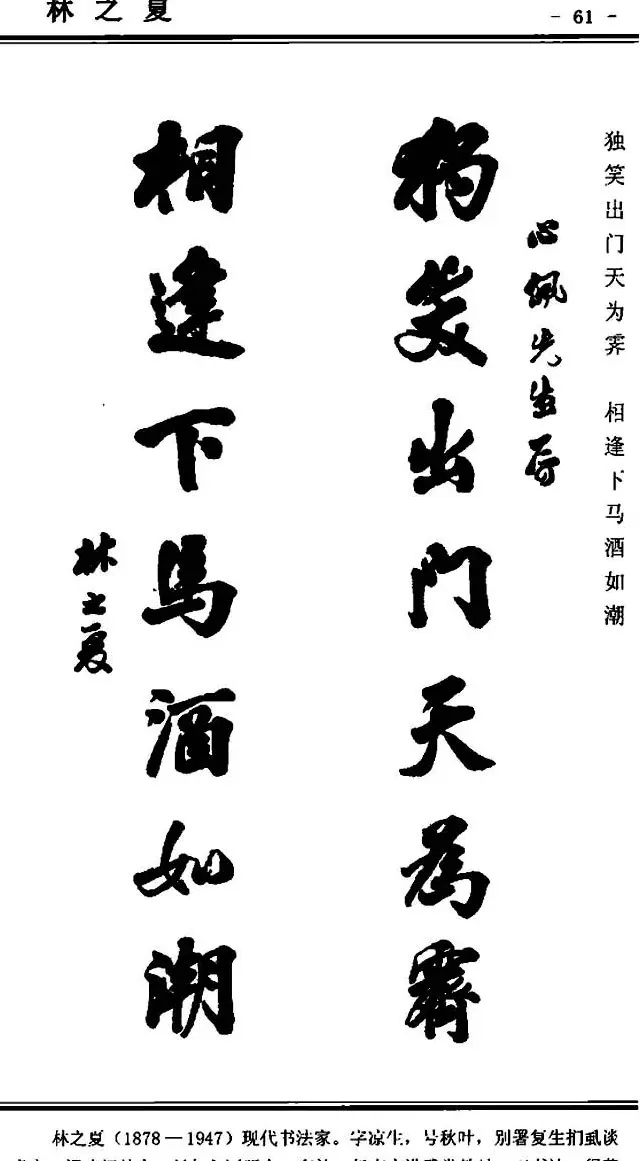 林之夏
- 61 -
独笑出门天为霁 相逢下马酒如潮
心佩先生属
独笑出門天為霽
相逢下馬酒如潮
林之夏
林之夏（1878—1947）现代书法家。字凉生，号秋叶，别署复生扪虱谈